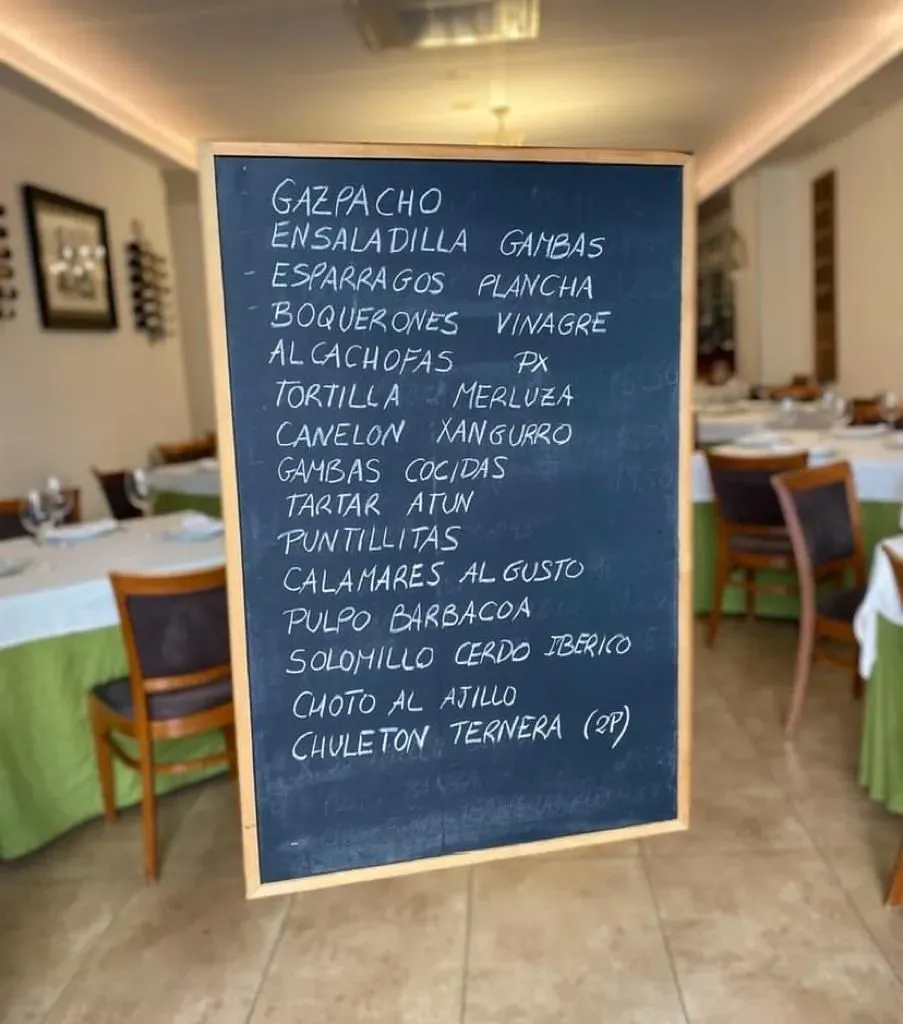 GAZPACHO
ENSALADILLA GAMBAS
ESPARRAGOS PLANCHA
BOQUERONES VINAGRE
ALCACHOFAS PX
TORTILLA MERLUZA
CANELON XANGURRO
GAMBAS COCIDAS
TARTAR ATUN
PUNTILLITAS
CALAMARES AL GUSTO
PULPO BARBACOA
SOLOMILLO CERDO IBERICO
CHOTO AL AJILLO
CHULETON TERNERA (2P)